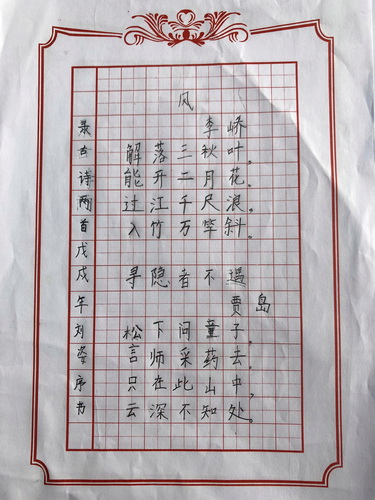 风
李峤
解落三秋叶，
能开二月花。
过江千尺浪，
入竹万竿斜。
寻隐者不遇
贾岛
松下问童子，
言师采药去。
只在此山中，
云深不知处。
录古诗两首戊戌年刘姿序书